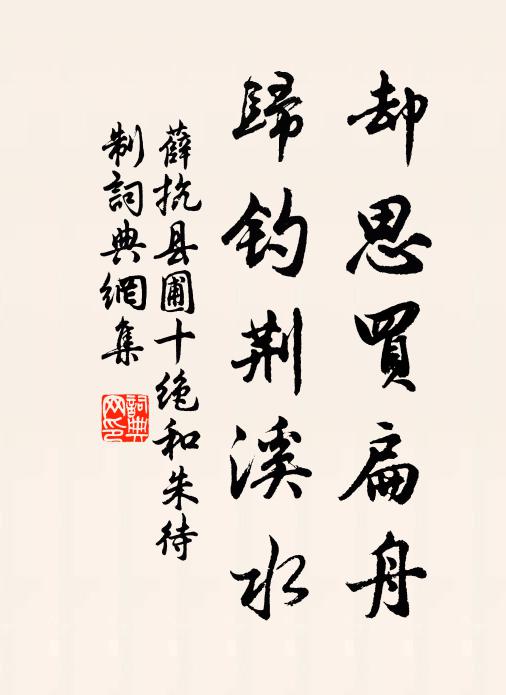 却思買扁舟
歸钓荆溪水
薛抗县圃十绝和朱待
制詞典網集
詞典网印